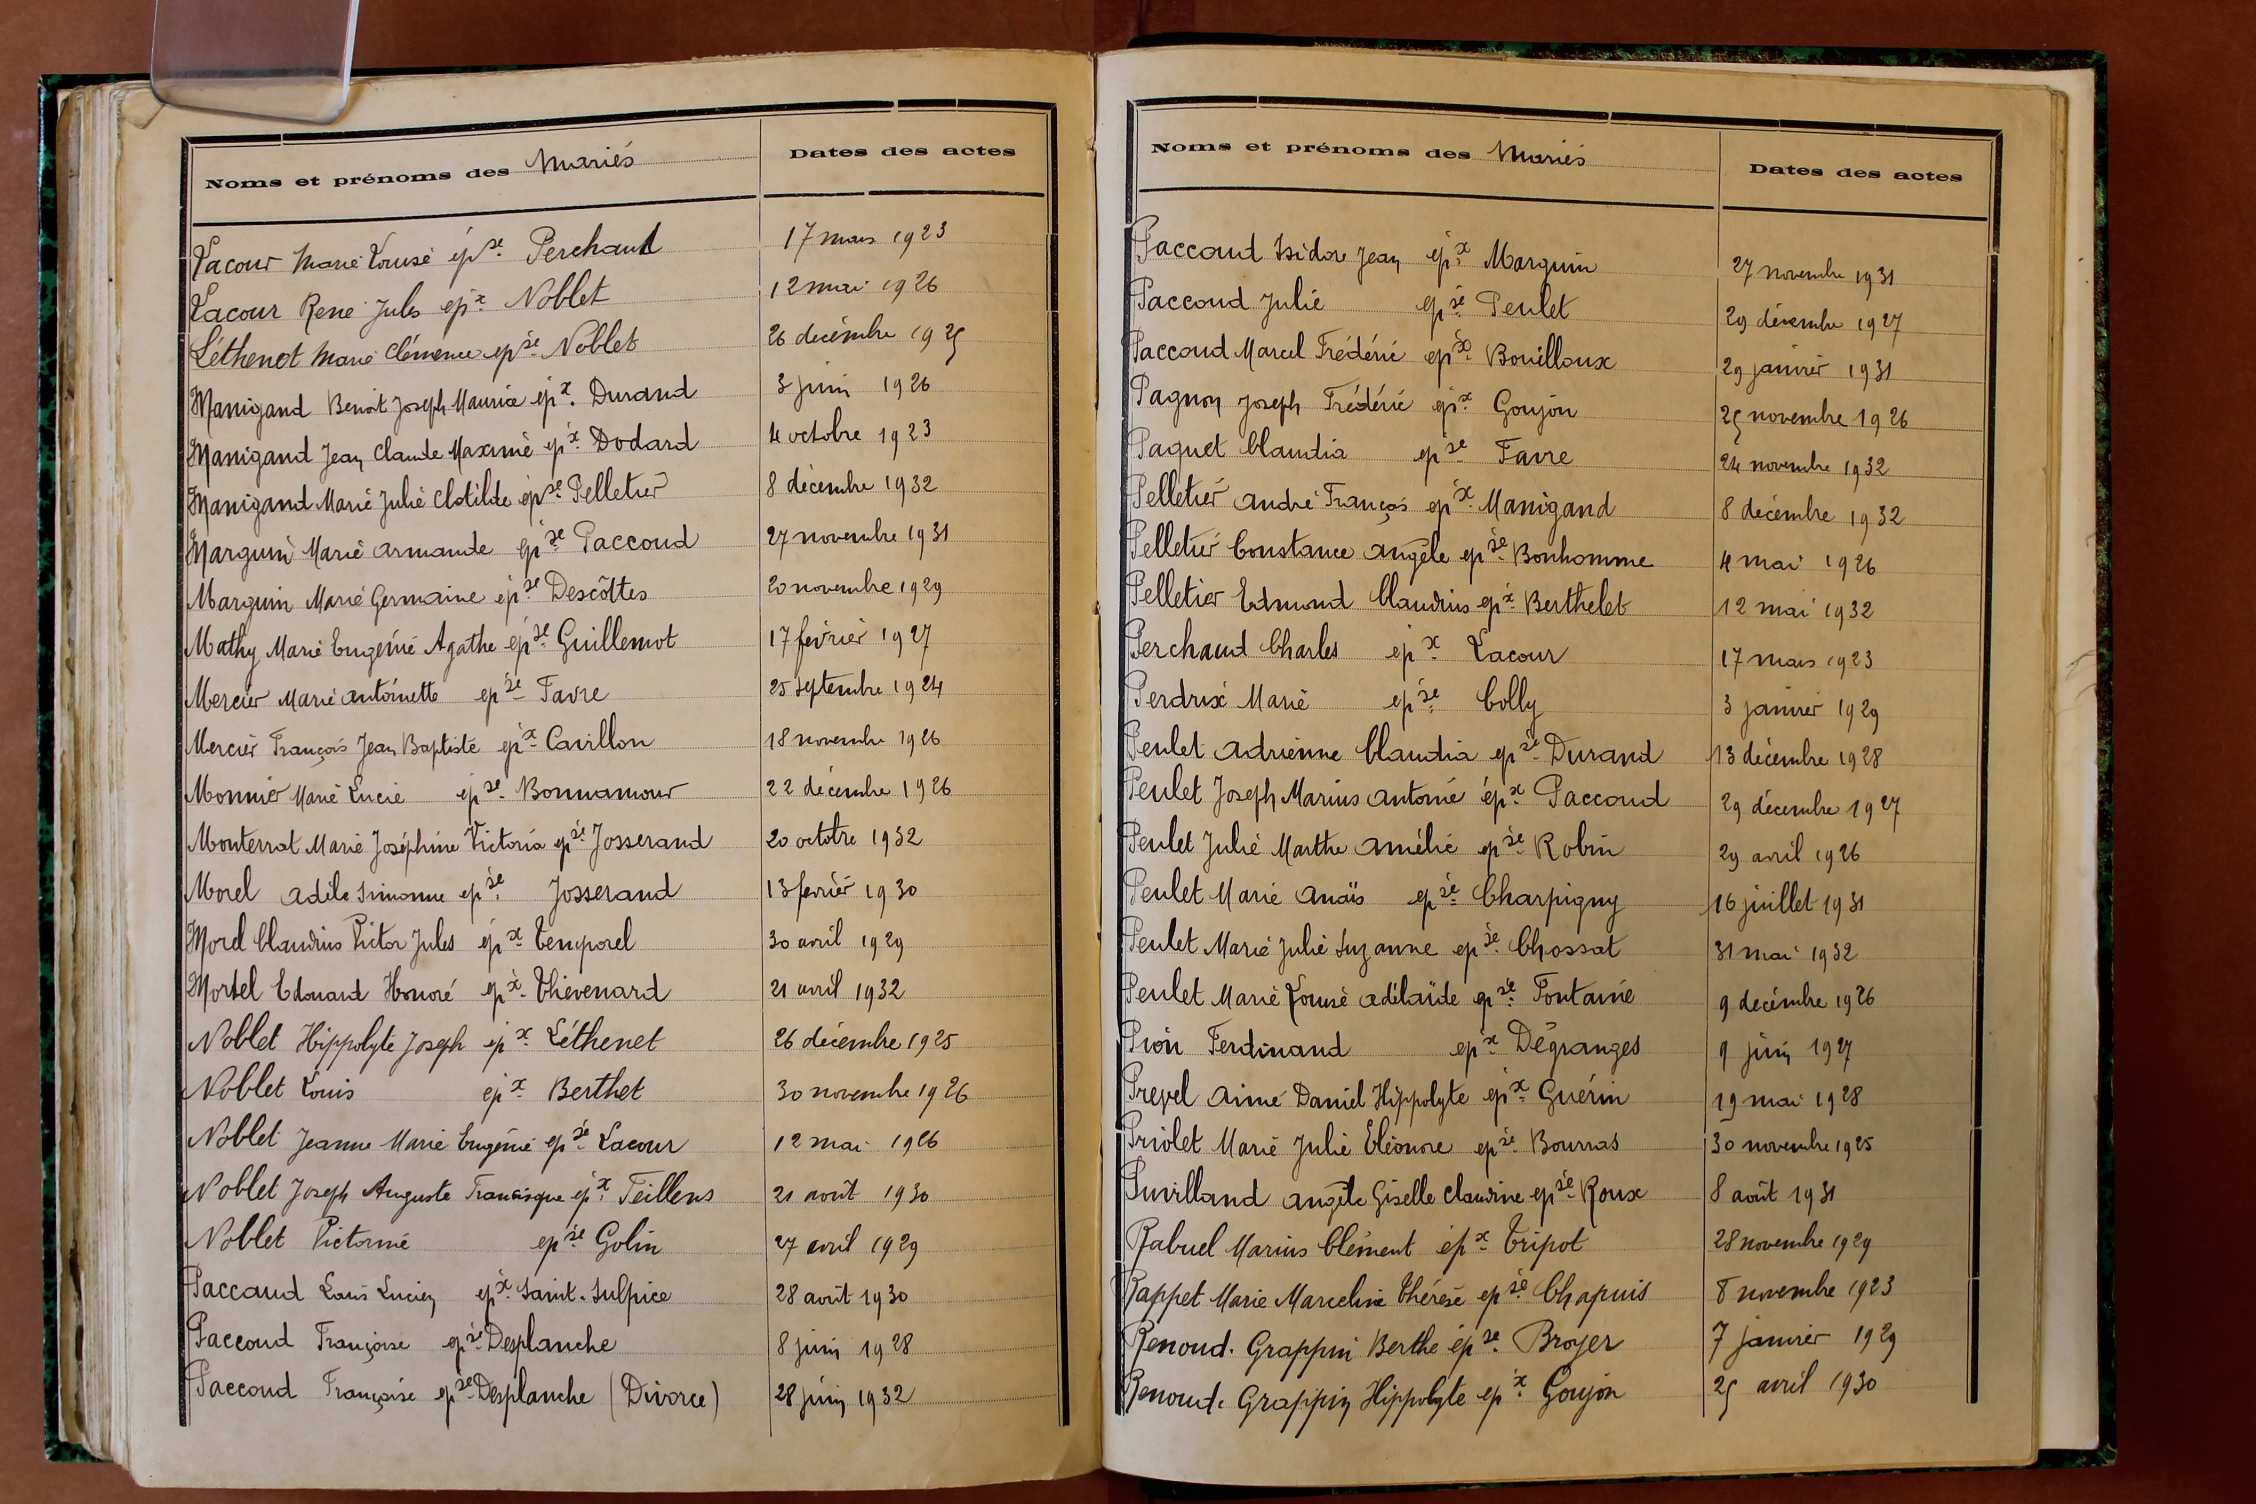 Noms et prénoms des Mariés Dates des actes
Lacour Marie Louise épse Perchaud 17 mars 1923
Lacour René Jules épx Noblet 12 mai 1926
Léthenet Marie Clémence epse Noblet 26 decémbre 1925
Manigand Benoit Joseph Maurice épx. Durand 3 juin 1926
Manigand Jean Claude Maxime épx Dodard 4 octobre 1923
Manigand Marie Julie Clotilde épse Pelletier 8 décembre 1932
Marguin Marie Armande épse Paccoud 27 novembre 1931
Marguin Marie Germaine épse Descôttes 20 novembre 1929
Mathy Marie Eugénie Agathe épse Guillemot 17 février 1927
Mercier Marie Antoinette epse Favre 25 septembre 1924
Mercier François Jean Baptiste épx Cavillon 18 novembre 1926
Monnier Marie Lucie epse Bonnamour 22 décembre 1926
Monterrat Marie Joséphine Victoria epse Josserand 20 octobre 1932
Morel Adèle Simonne epse Josserand 13 fevriér 1930
Morel Claudius Victor Jules épx Temporel 30 avril 1929
Mortel Edouard Honoré épx Thévenard 21 avril 1932
Noblet Hippolyte Joseph épx Léthenet 26 décembre 1925
Noblet Louis épx Berthet 30 novembre 1926
Noblet Jeanne Marie Eugénie epse Lacour 12 mai 1926
Noblet Joseph Auguste Francisque épx Teillens 21 août 1930
Noblet Victorine epse Golin 27 avril 1929
Paccaud Louis Lucien epx Saint-Sulpice 28 août 1930
Paccoud Françoise epse Desplanche 8 juin 1928
Paccoud Françoise epse Desplanche (Divorce) 28 juin 1932
Noms et prénoms des Mariés Dates des actes
Paccoud Isidore Jean épx Marguin 27 novembre 1931
Paccoud Julie epse Peulet 29 décembre 1927
Paccoud Marcel Frédéric epx Bouilloux 29 janvier 1931
Pagnon Joseph Frédéric epx Goujon 25 novembre 1926
Paquet Claudia epse Favre 24 novembre 1932
Pelletier André François epx Manigand 8 decémbre 1932
Pelletier Constance Angèle epse Bonhomme 4 mai 1926
Pelletier Edmond Claudius epx Berthelet 12 mai 1932
Perchaud Charles épx Lacour 17 mars 1923
Perdrix Marie epse Colly 3 janvier 1929
Peulet Adrienne Claudia epse Durand 13 décembre 1928
Peulet Joseph Marius Antonie épx Paccoud 29 décembre 1927
Peulet Julie Marthe Amélie epse Robin 29 avril 1926
Peulet Marie Anaïs epse Charpigny 16 juillet 1931
Peulet Marie Julie Suzanne epse Chossat 31 mai 1932
Peulet Marie Louise Adélaïde epse Fontaine 9 decémbre 1926
Pion Ferdinand epx Dégranges 9 juin 1927
Prevel Aimé Daniel Hippolyte épx Guérin 19 mai 1928
Priolet Marie Julie Eléonore epse Bourras 30 novembre 1925
Puvilland Angèle Giselle Claudine epse Roux 8 août 1931
Rabuel Marius Clément épx Tripot 28 novembre 1929
Rappet Marie Marceline Thérèse epse Chapuis 8 novembre 1923
Renoud-Grappin Berthe épse Broyer 7 janvier 1929
Renoud-Grappin Hippolyte epx Goujon 25 avril 1930